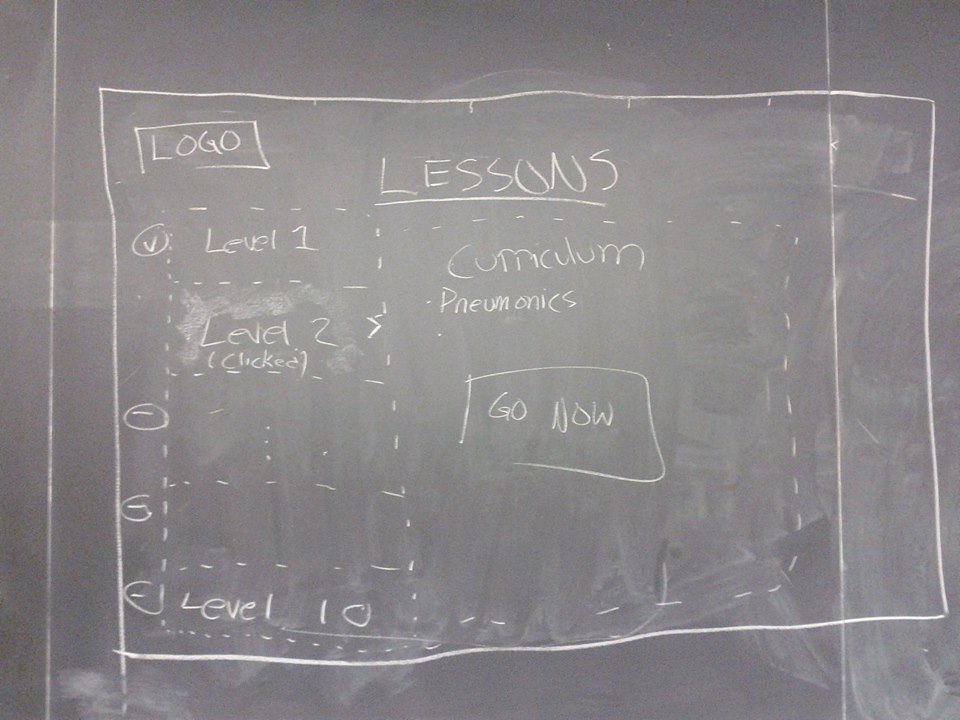 LOGO
LESSONS
v
Level 1
Level 2
(Clicked)
Level 10
Curriculum
- Pneumonics
GO NOW